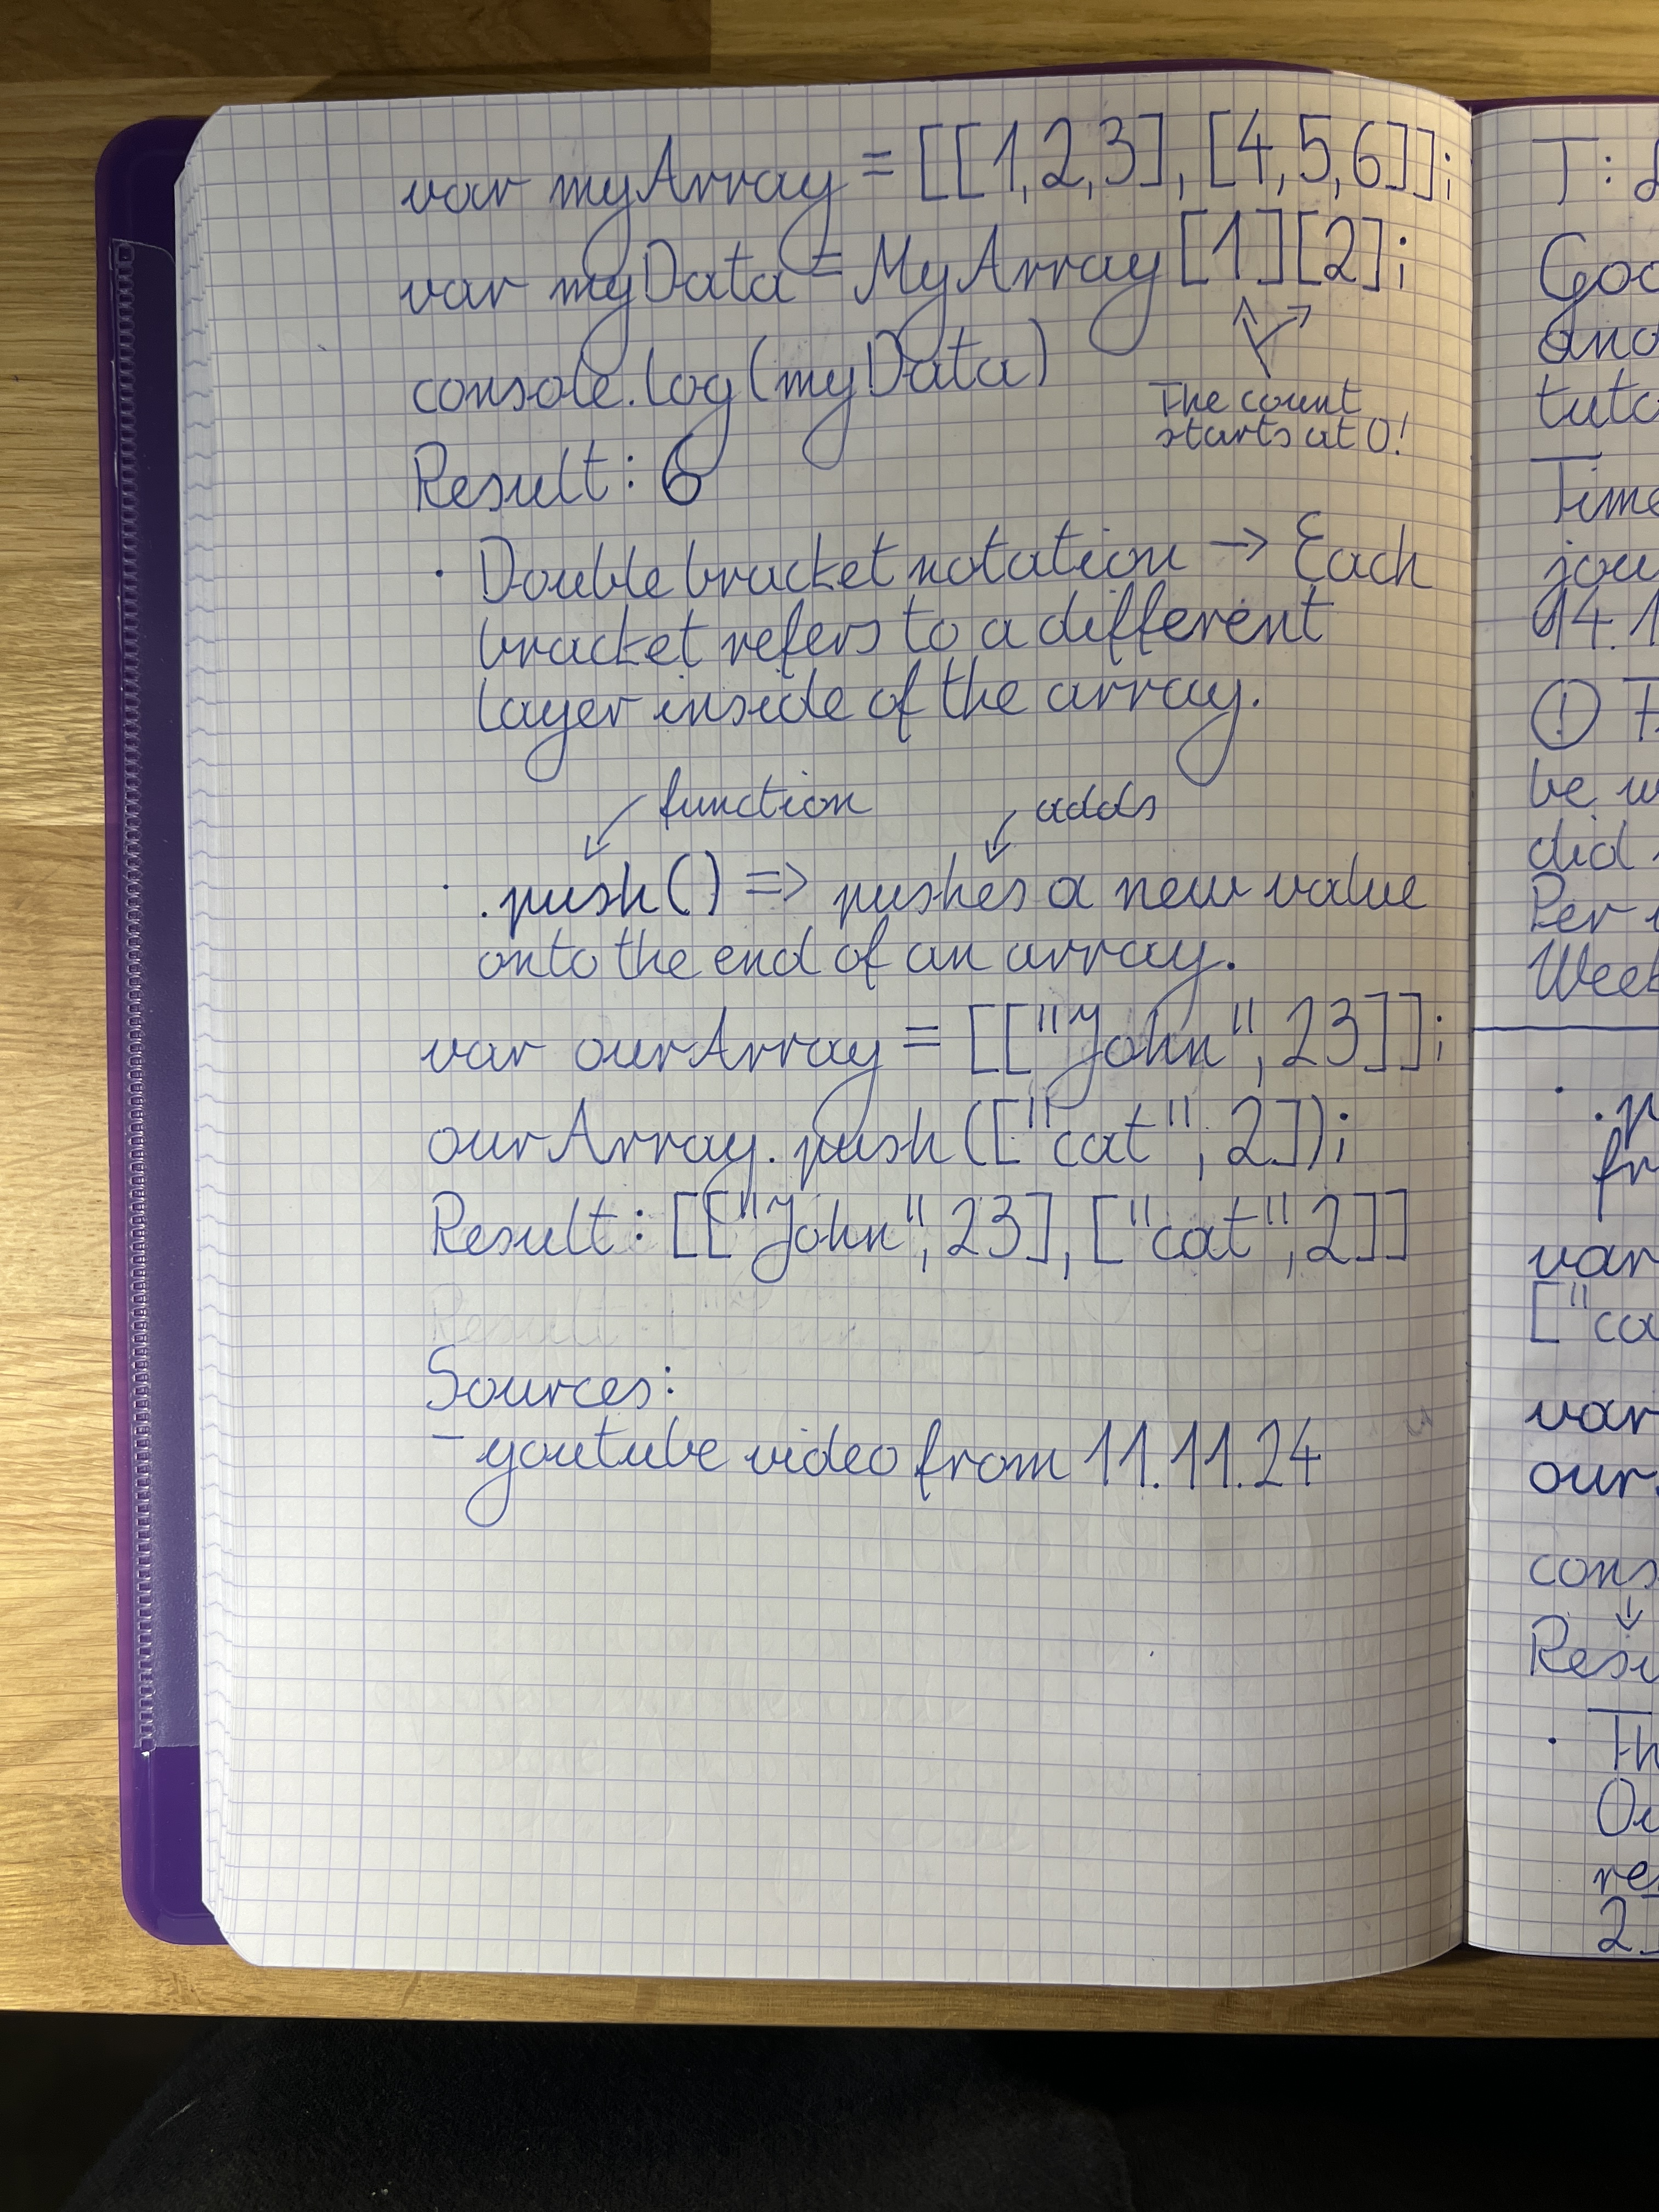 var myArray = [[1,2,3], [4,5,6]];
var myData = MyArray [1][2];
console.log(myData)
The count
starts at 0!
Result: 6
· Double bracket notation → Each
bracket refers to a different
layer inside of the array.
function
adds
· .push() => pushes a new value
onto the end of an array.
var ourArray = [["John", 23]];
ourArray.push(["cat", 2]);
Result: [["John", 23], ["cat", 2]]
Sources:
- youtube video from 11.11.24
T:
Goo
and
tuto
Time
jou
04.1
!
be w
did
Per
Week
· .p
fr
var
["ca
var
our
cons
↓
Resu
· Th
Ou
res
2.